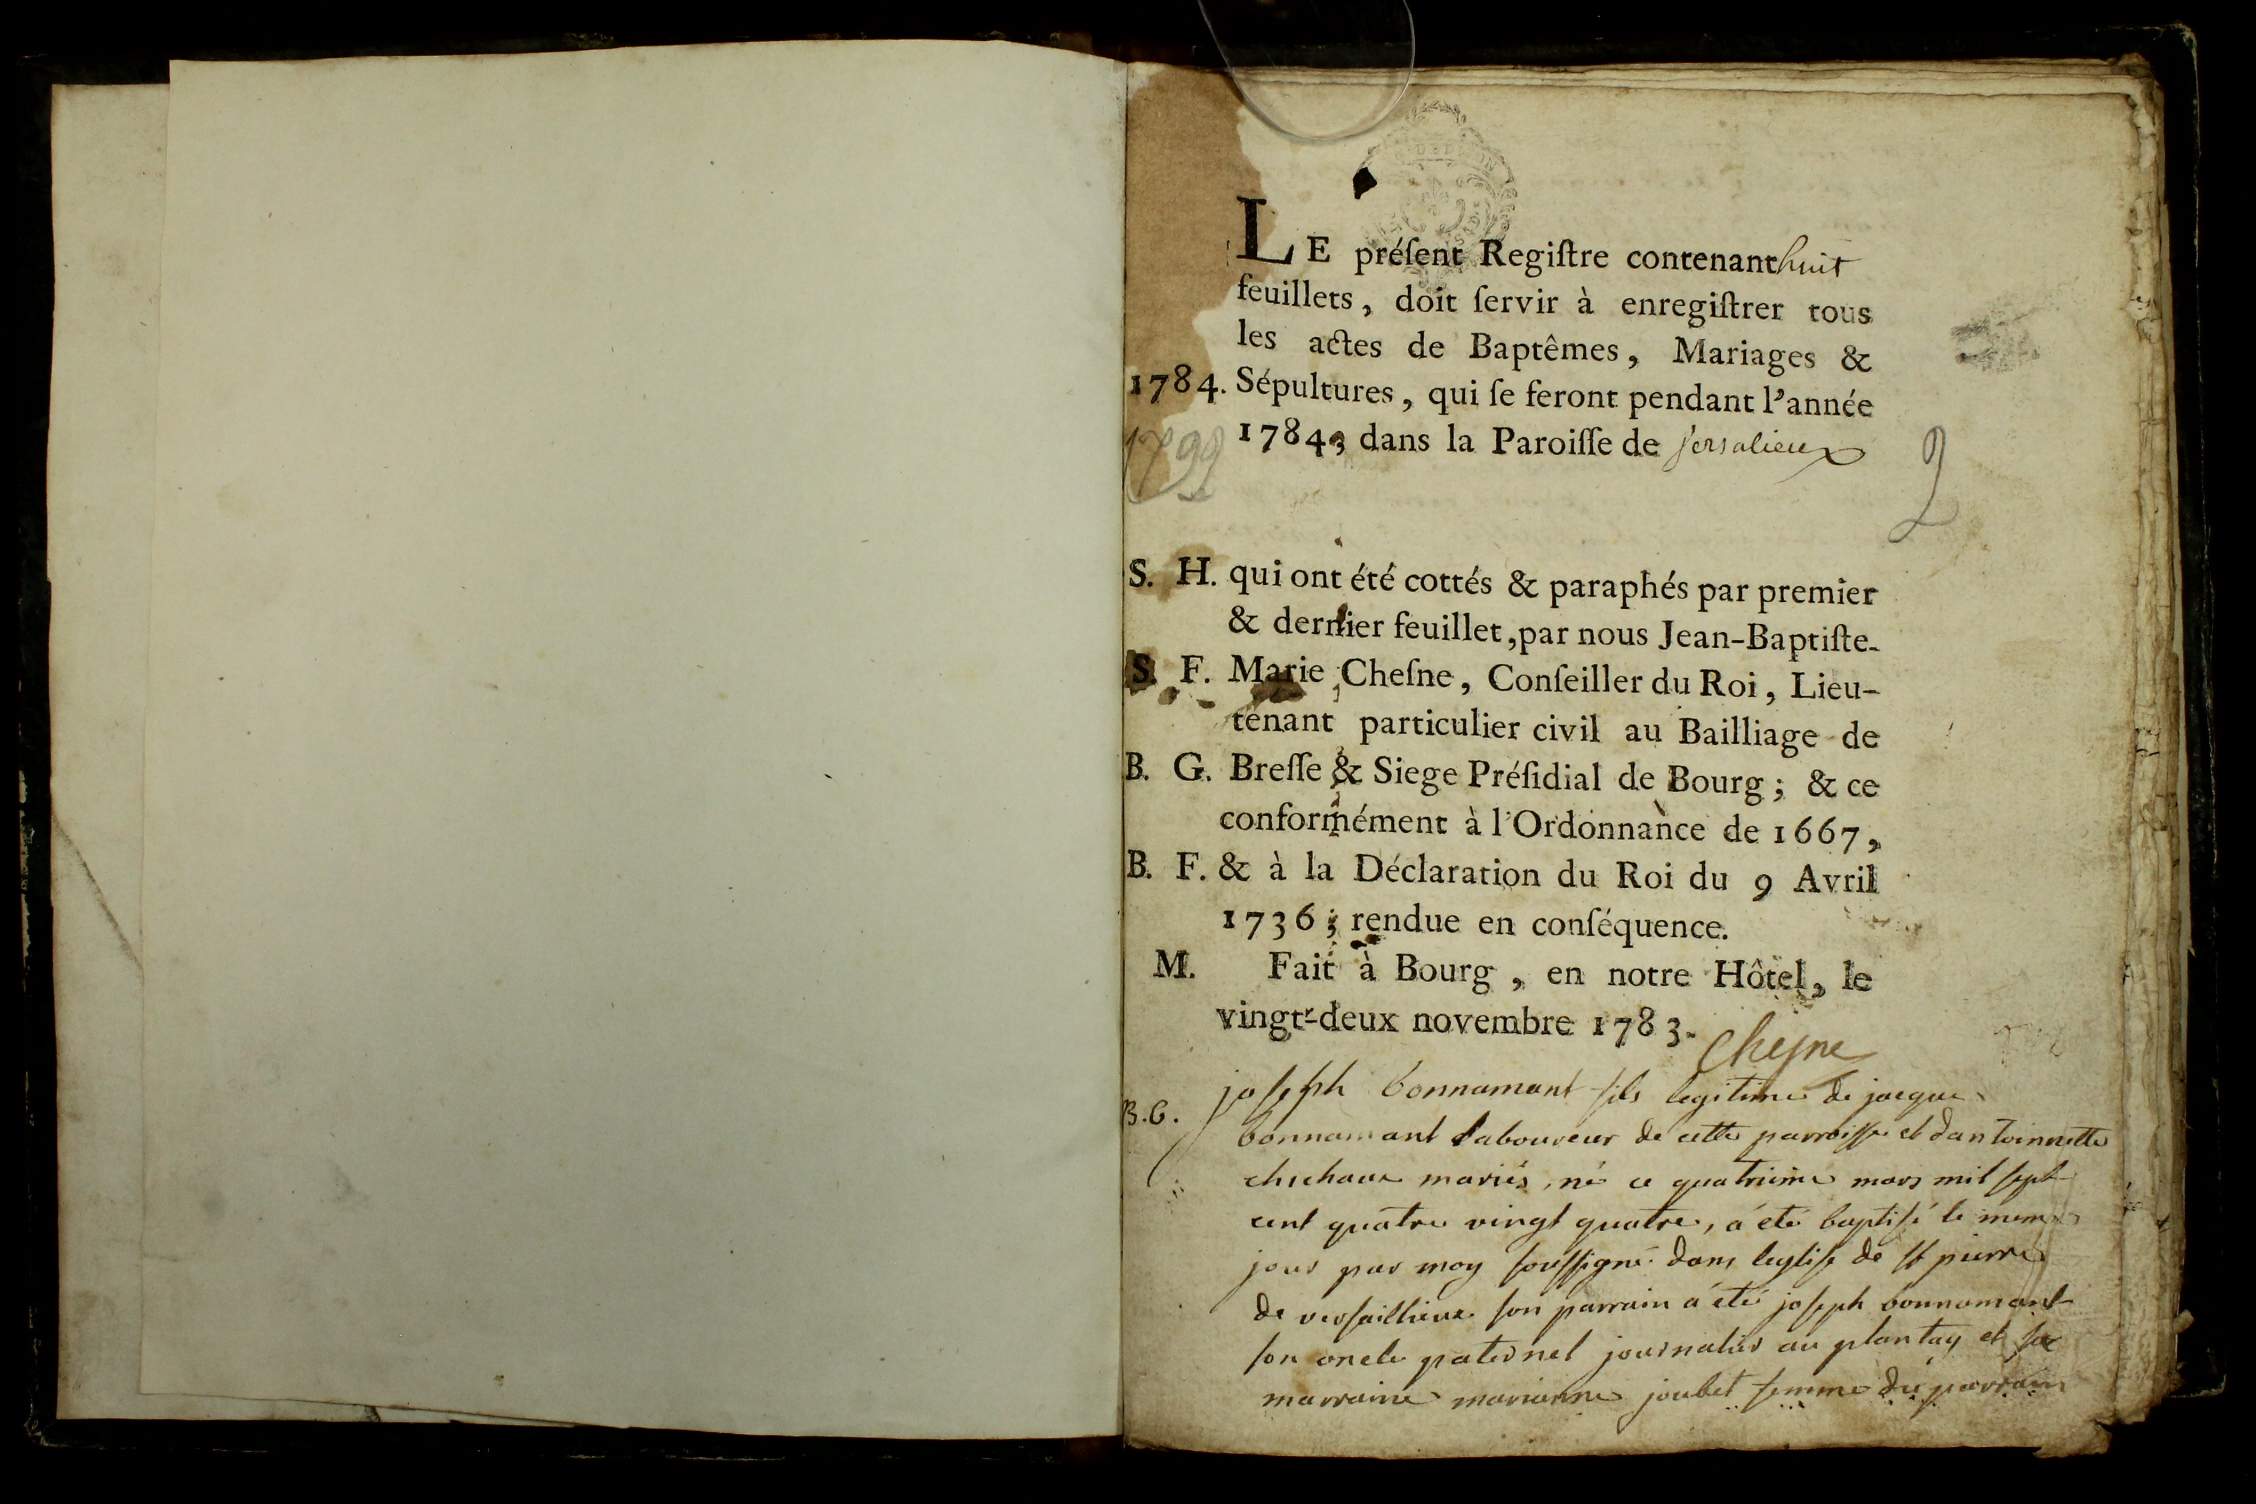 LE préſent Regiſtre contenant huit
feuillets, doit ſervir à enregiſtrer tous
les actes de Baptêmes, Mariages &
1784. Sépultures, qui ſe feront pendant l'année
1784, dans la Paroiſſe de Versalieux
2
S. H. qui ont été cottés & paraphés par premier
& dernier feuillet, par nous Jean-Baptiſte-
S. F. Marie Cheſne, Conſeiller du Roi, Lieu-
tenant particulier civil au Bailliage de
B. G. Breſſe & Siege Préſidial de Bourg; & ce
conformément à l'Ordonnance de 1667,
B. F. & à la Déclaration du Roi du 9 Avril
1736; rendue en conſéquence.
M. Fait à Bourg, en notre Hôtel, le
vingt-deux novembre 1783.
Cheſne
joſeph bonnamant fils legitime de jacque
B.G. bonnamant laboureur de cette parroiſſe et dantoinette
mariés, né ce quatrieme mars mil ſept
cent quatre vingt quatre, a été baptiſé le meme
jour par moy ſouſſigné dans legliſe de ſt pierre
de verſaillieux ſon parrain a été joſeph bonnamant
ſon oncle paternel journalier au plantay et ſa
marraine marianne joubet femme du parrain